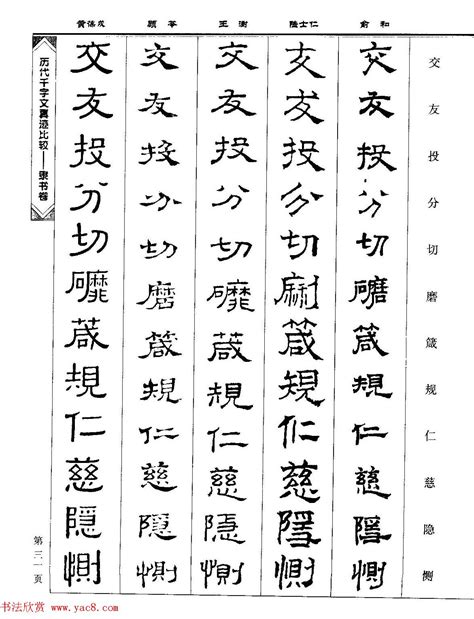 俞和
陆士仁
王澍
顾苓
黄葆戉
交友投分切磨箴规仁慈隐恻
交友投分切磨箴規仁慈隱惻
交友投分切磨箴規仁慈隱惻
交友投分切磨箴規仁慈隱惻
交友投分切磨箴規仁慈隱惻
交友投分切磨箴規仁慈隱惻
历代千字文真迹比较——隶书卷
第三一页
书法欣赏 www.yac8.com